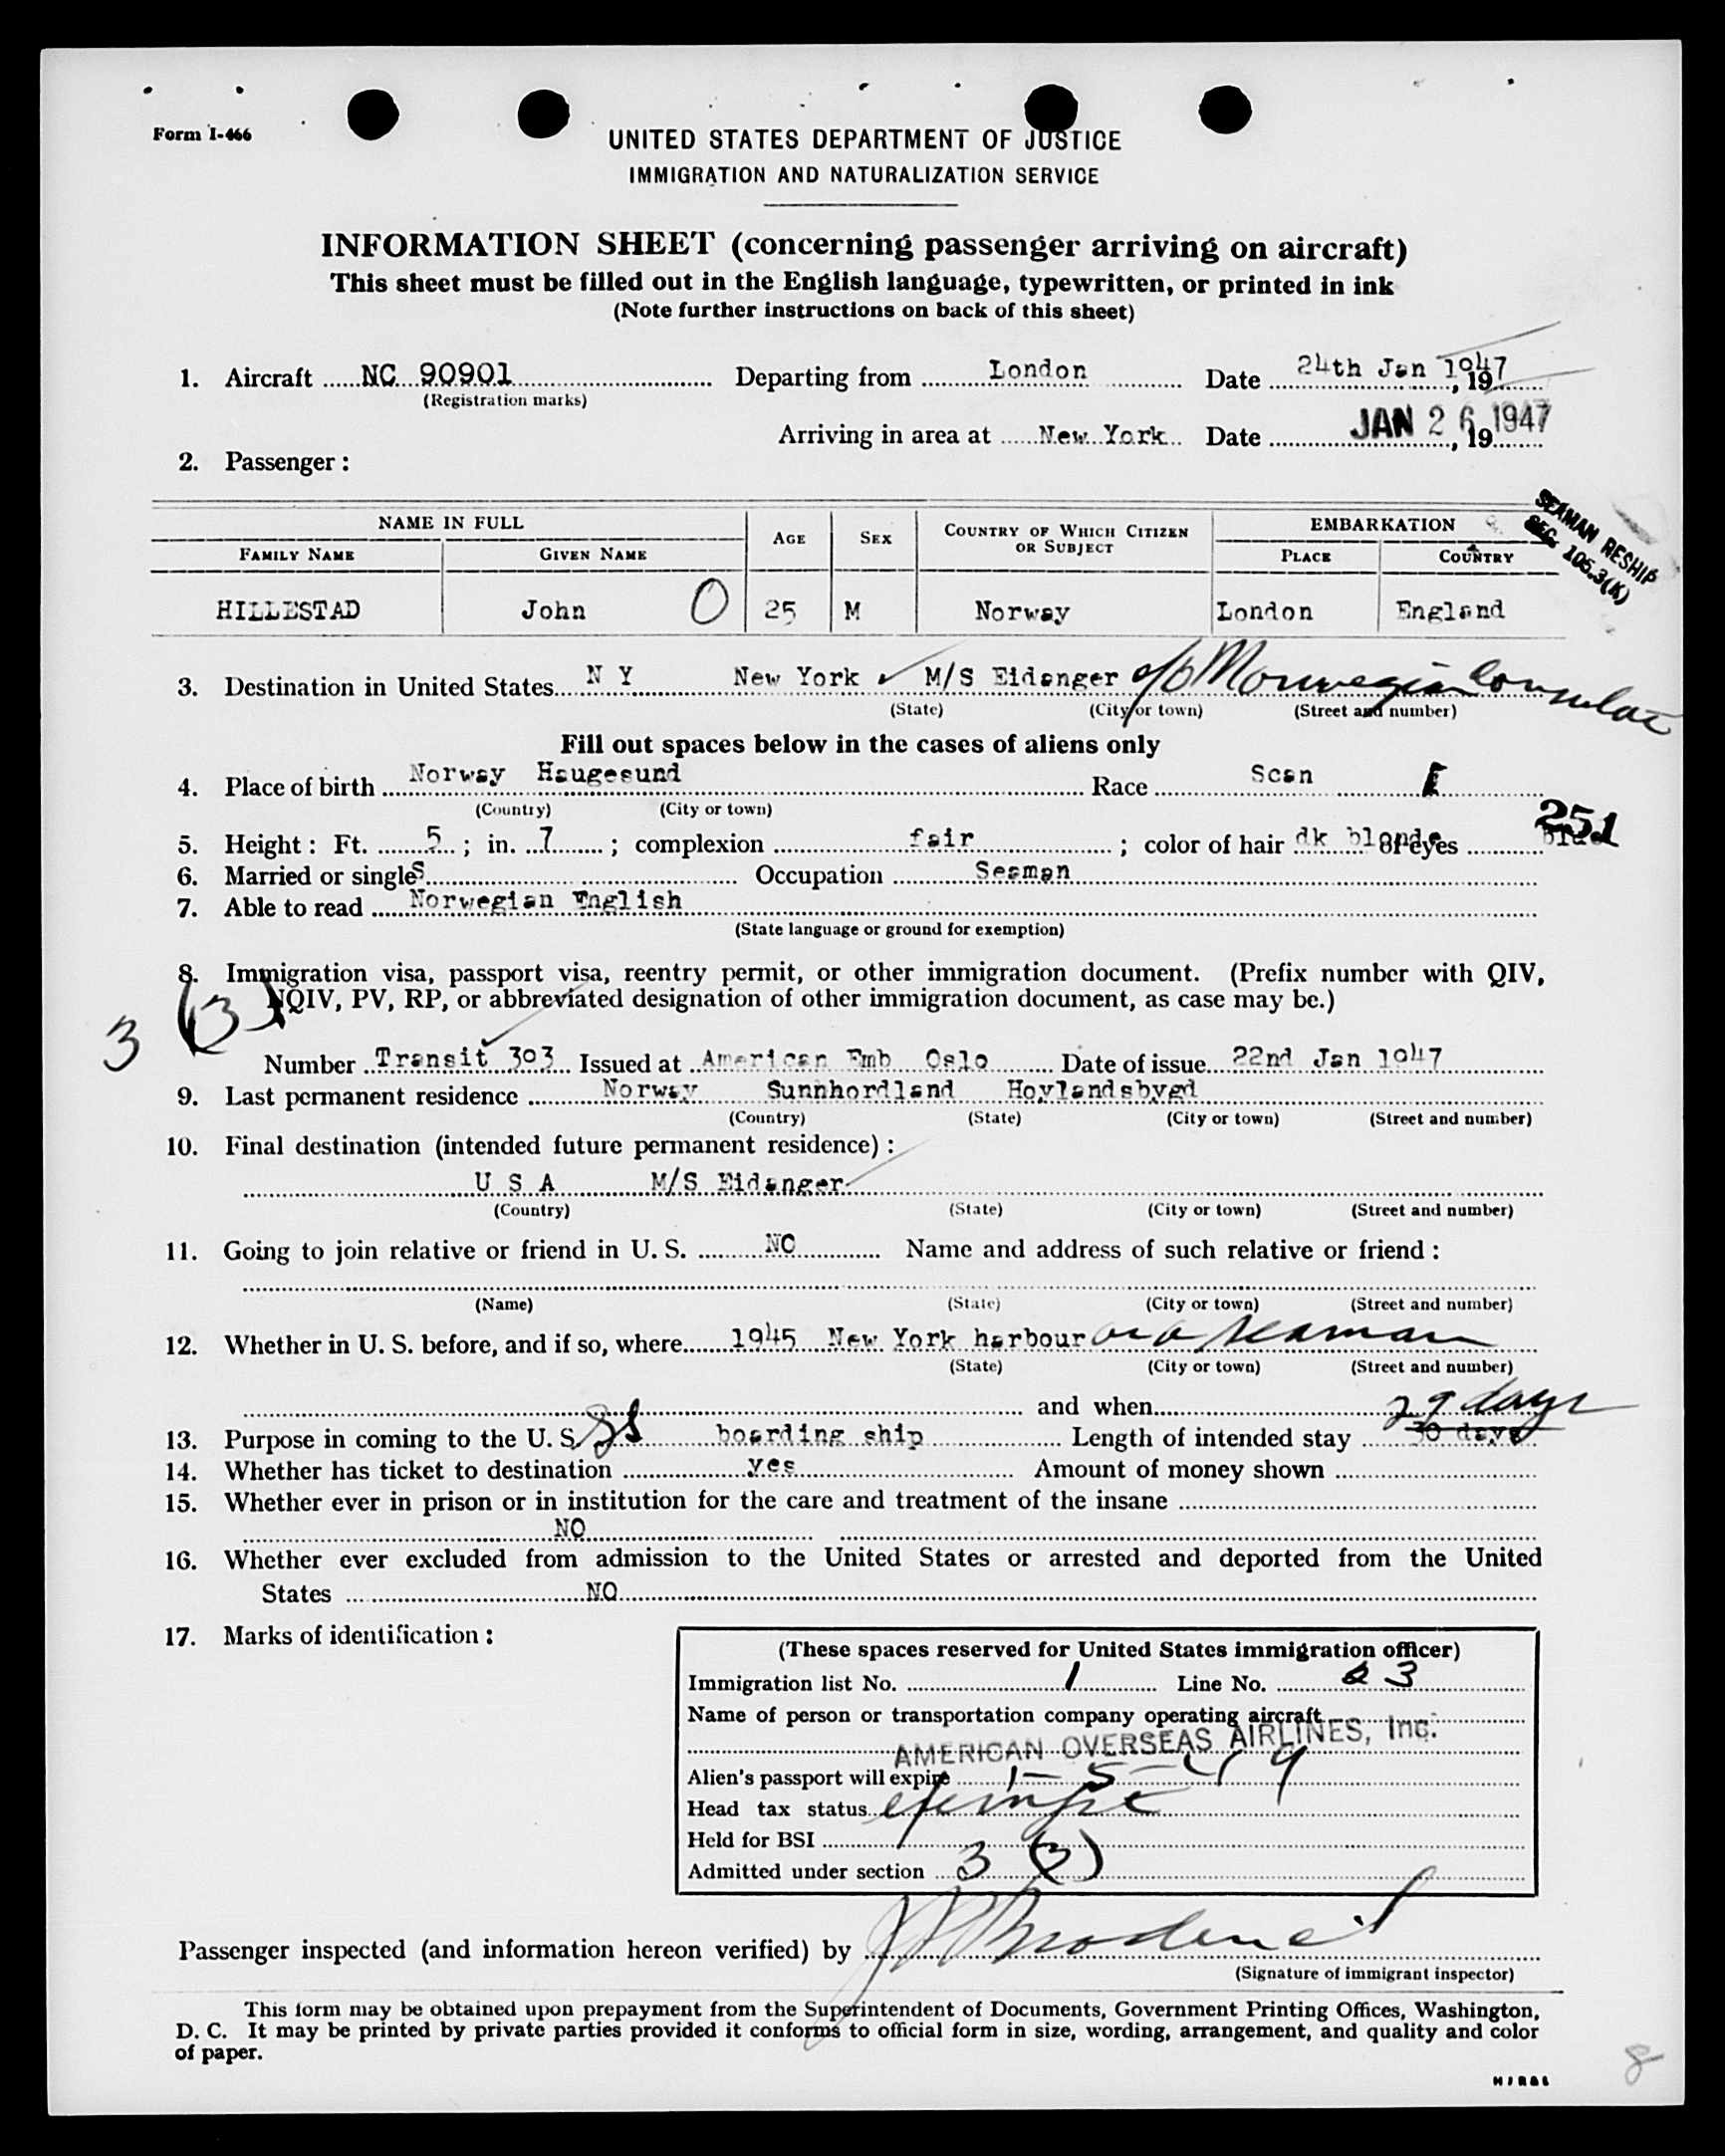 Form I-466
UNITED STATES DEPARTMENT OF JUSTICE
IMMIGRATION AND NATURALIZATION SERVICE
INFORMATION SHEET (concerning passenger arriving on aircraft)
This sheet must be filled out in the English language, typewritten, or printed in ink
(Note further instructions on back of this sheet)
1. Aircraft NC 90901 Departing from London Date 24th Jan 1947, 19
(Registration marks)
Arriving in area at New York Date JAN 26 1947, 19
2. Passenger:
SEAMAN RESHIP
SEC. 105.3(K)
NAME IN FULL AGE SEX COUNTRY OF WHICH CITIZEN OR SUBJECT EMBARKATION
FAMILY NAME GIVEN NAME PLACE COUNTRY
HILLESTAD John O 25 M Norway London England
3. Destination in United States N Y New York M/S Eidanger c/o Norwegian Consulate
(State) (City or town) (Street and number)
Fill out spaces below in the cases of aliens only
4. Place of birth Norway Haugesund Race Scan
(Country) (City or town)
251
5. Height: Ft. 5; in. 7; complexion fair; color of hair dk blonde of eyes blue
6. Married or single S Occupation Seaman
7. Able to read Norwegian English
(State language or ground for exemption)
8. Immigration visa, passport visa, reentry permit, or other immigration document. (Prefix number with QIV,
NQIV, PV, RP, or abbreviated designation of other immigration document, as case may be.)
3 (3)
Number Transit 303 Issued at American Emb Oslo Date of issue 22nd Jan 1947
9. Last permanent residence Norway Sunnhordland Hoylandsbygd
(Country) (State) (City or town) (Street and number)
10. Final destination (intended future permanent residence):
U S A M/S Eidanger
(Country) (State) (City or town) (Street and number)
11. Going to join relative or friend in U. S. NO Name and address of such relative or friend:
(Name) (State) (City or town) (Street and number)
12. Whether in U. S. before, and if so, where 1945 New York harbour as a seaman
(State) (City or town) (Street and number)
and when 29 days
13. Purpose in coming to the U. S. boarding ship Length of intended stay 30 days
14. Whether has ticket to destination yes Amount of money shown
15. Whether ever in prison or in institution for the care and treatment of the insane
NO
16. Whether ever excluded from admission to the United States or arrested and deported from the United
States NO
17. Marks of identification:
(These spaces reserved for United States immigration officer)
Immigration list No. 1 Line No. 3
Name of person or transportation company operating aircraft
AMERICAN OVERSEAS AIRLINES, Inc.
Alien's passport will expire 1-5-49
Head tax status exempt
Held for BSI
Admitted under section 3 (3)
Passenger inspected (and information hereon verified) by
(Signature of immigrant inspector)
This form may be obtained upon prepayment from the Superintendent of Documents, Government Printing Offices, Washington,
D. C. It may be printed by private parties provided it conforms to official form in size, wording, arrangement, and quality and color
of paper.
8